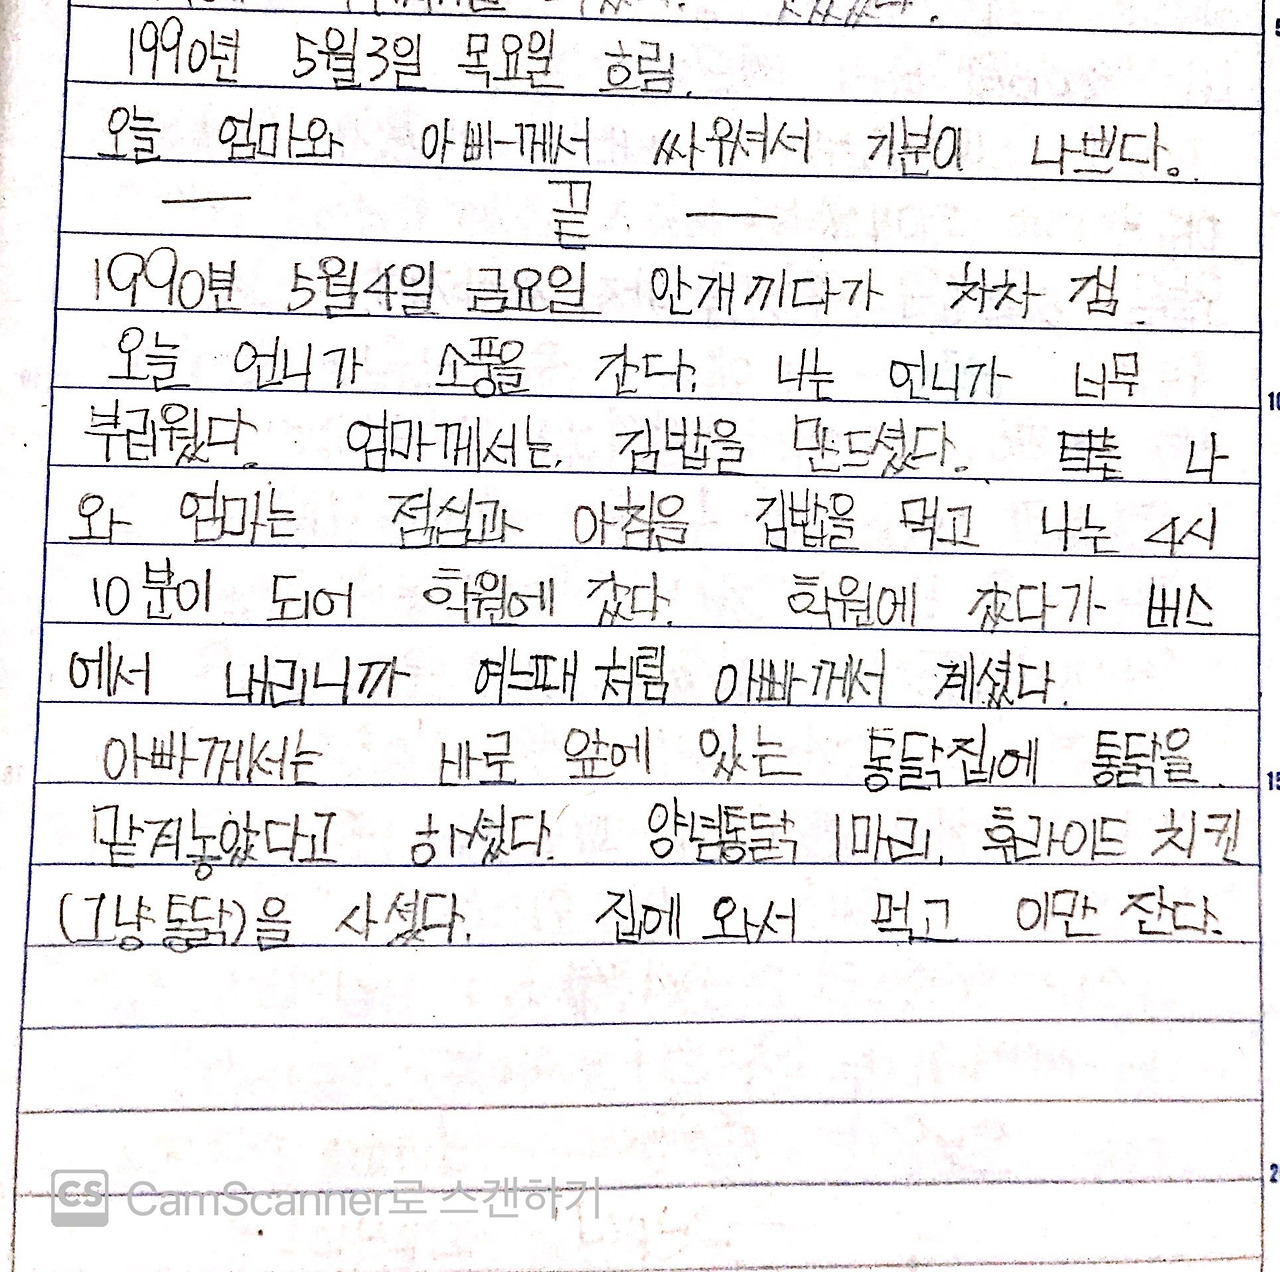 1990년 5월3일 목요일 흐림.
오늘 엄마와 아빠께서 싸워셔서 기분이 나쁘다.
— 끝 —
1990년 5월4일 금요일 안개끼다가 차차 갬.
오늘 언니가 소풍을 간다. 나는 언니가 너무
부럽웠다. 엄마께서는, 김밥을 만드셨다. 나
와 엄마는 점심과 아침을 김밥을 먹고 나는 4시
10분이 되어 학원에 갔다. 학원에 갔다가 버스
에서 내리니까 여느때 처럼 아빠께서 계셨다.
아빠께서는 바로 앞에 있는 통닭집에 통닭을
맡겨놓았다고 하셨다. 양념통닭 1마리, 후라이드 치킨
(그냥 통닭)을 사셨다. 집에 와서 먹고 이만 잔다.
CS CamScanner로 스캔하기